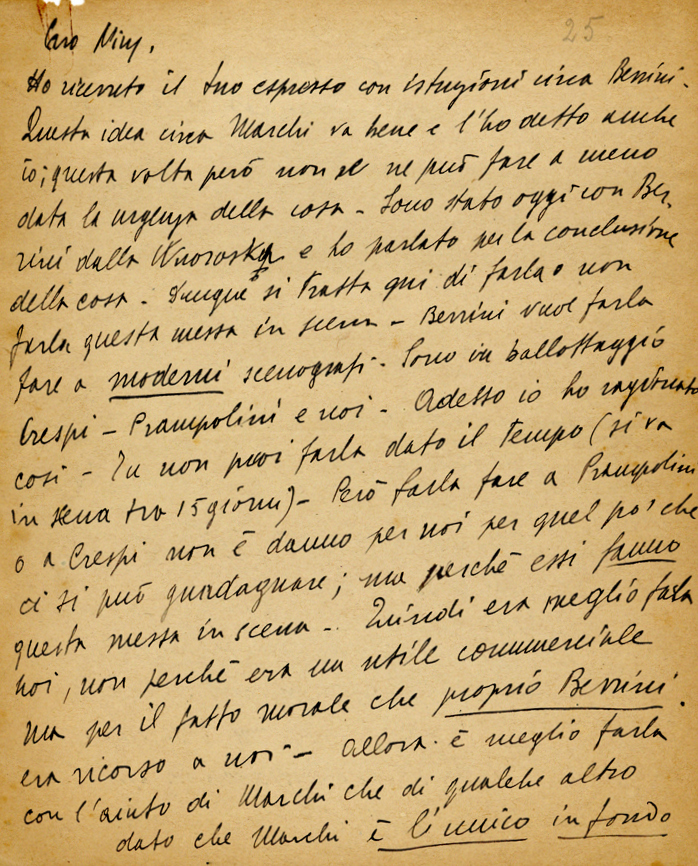 25
Caro Ninj,
Ho ricevuto il tuo espresso con istruzioni circa Berrini.
Questa idea circa Marchi va bene e l'ho detto anche
io; questa volta però non se ne può fare a meno
data la urgenza della cosa - Sono stato oggi con Ber-
rini dalla e ho parlato per la conclusione
della cosa - Dunque si tratta qui di farla o non
farla questa messa in scena - Berrini vuol farla
fare a moderni scenografi - Sono in ballottaggio
Crespi - Prampolini e noi - Adesso io ho ragionato
così - Tu non puoi farla dato il tempo (si va
in scena tra 15 giorni) - Però farla fare a Prampolini
o a Crespi non è danno per noi per quel po' che
ci si può guadagnare; ma perchè essi fanno
questa messa in scena - Quindi era meglio farla
noi, non perchè era un utile commerciale
ma per il fatto morale che proprio Berrini
era ricorso a noi - Allora è meglio farla
con l'aiuto di Marchi che di qualche altro
dato che Marchi è l'unico in fondo